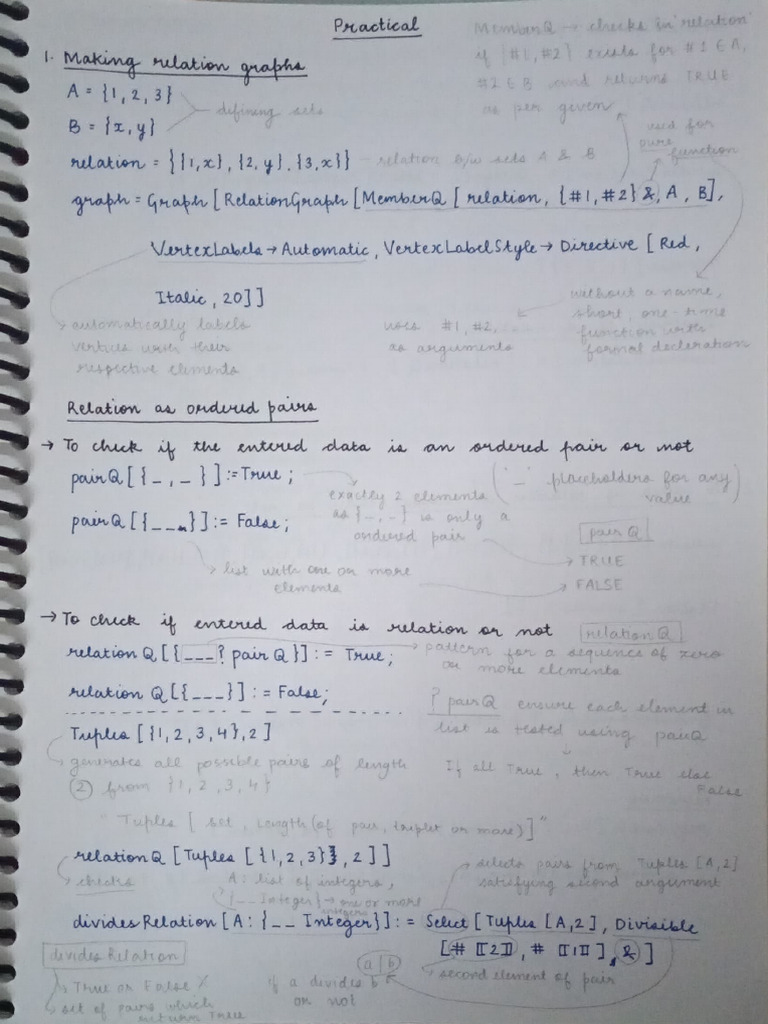 Practical
MemberQ → checks in 'relation'
if {#1, #2} exists for #1 ∈ A,
#2 ∈ B and returns TRUE
as per given
1. Making relation graphs
A = {1, 2, 3}
B = {x, y}
defining sets
used for
pure
function
relation = {{1, x}, {2, y}, {3, x}} - relation b/w sets A & B
graph = Graph [RelationGraph [MemberQ [relation, {#1, #2} &, A, B],
VertexLabels → Automatic, VertexLabelStyle → Directive [Red,
Italic, 20]]
→ automatically labels
vertices with their
respective elements
uses #1, #2,
as arguments
without a name,
short, one-time
function with
formal decleration
Relation as ordered pairs
→ To check if the entered data is an ordered pair or not
pairQ [{_, _}] := True;
exactly 2 elements
as {_, _} is only a
ordered pair
('_' placeholders for any
value)
pairQ [{___}] := False;
→ list with one or more
elements
pairQ
→ TRUE
→ FALSE
→ To check if entered data is relation or not
relationQ
relationQ [{___? pairQ}] := True;
→ pattern for a sequence of zero
or more elements
relationQ [{___}] := False;
? pairQ ensure each element in
list is tested using pairQ
If all True, then True else
False
Tuples [{1, 2, 3, 4}, 2]
→ generates all possible pairs of length
2 from {1, 2, 3, 4}
"Tuples [set, Length (of pair, triplet or more)]"
relationQ [Tuples [{1, 2, 3}, 2]]
→ checks
A: list of integers,
{__Integer} → one or more
integers
→ selects pairs from Tuples [A, 2]
satisfying second argument
dividesRelation [A: {__Integer}] := Select [Tuples [A, 2], Divisible
[#[[2]], #[[1]]], &]
divides Relation
→ True or False
→ set of pairs which
return True
if a divides b
or not
a|b
→ second element of pair